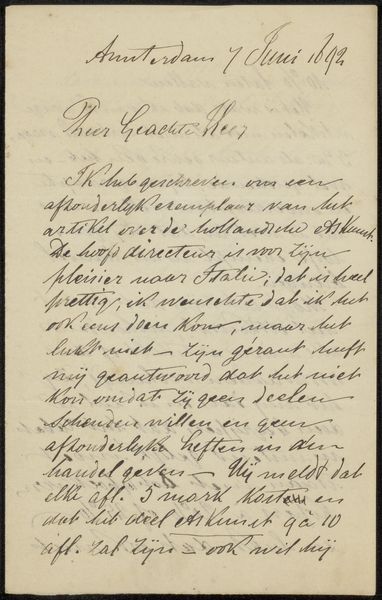 Amsterdam 7 Juni 1892
Zeer Geachte Heer
Ik heb geschreven om een
afzonderlijk exemplaar van het
artikel over de hollandsche etskunst.
De hoofd directeur is voor zijn
pleisier naar Italie; dat is heel
prettig, ik wenschte dat ik het
ook eens doen kon, maar het
lukt niet – zijn gérant heeft
mij geantwoord dat het niet
kon omdat zij geen deelen
schenden willen en geen
afzonderlijke heften in den
handel geven – Hij meldt dat
elke afl. 3 mark kosten en
dat het deel etskunst 9 à 10
afl. zal zijn – ook wil hij